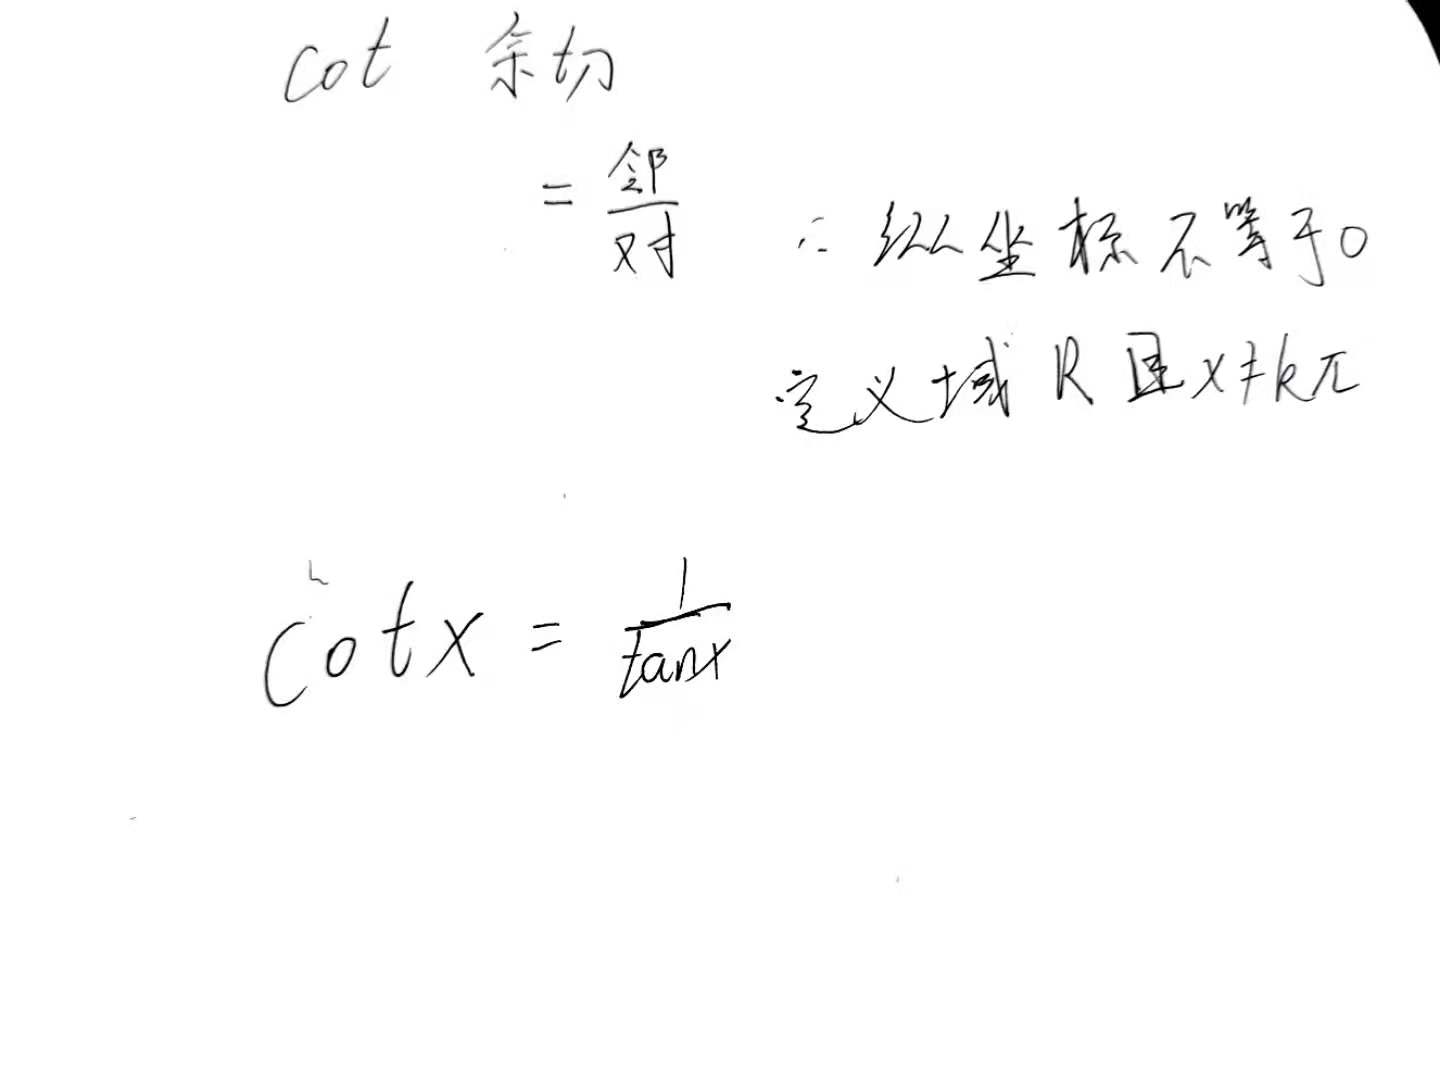 cot 余切
= 邻/对 ∴ 纵坐标不等于0
定义域 R 且 x≠kπ
cotx = 1/tanx